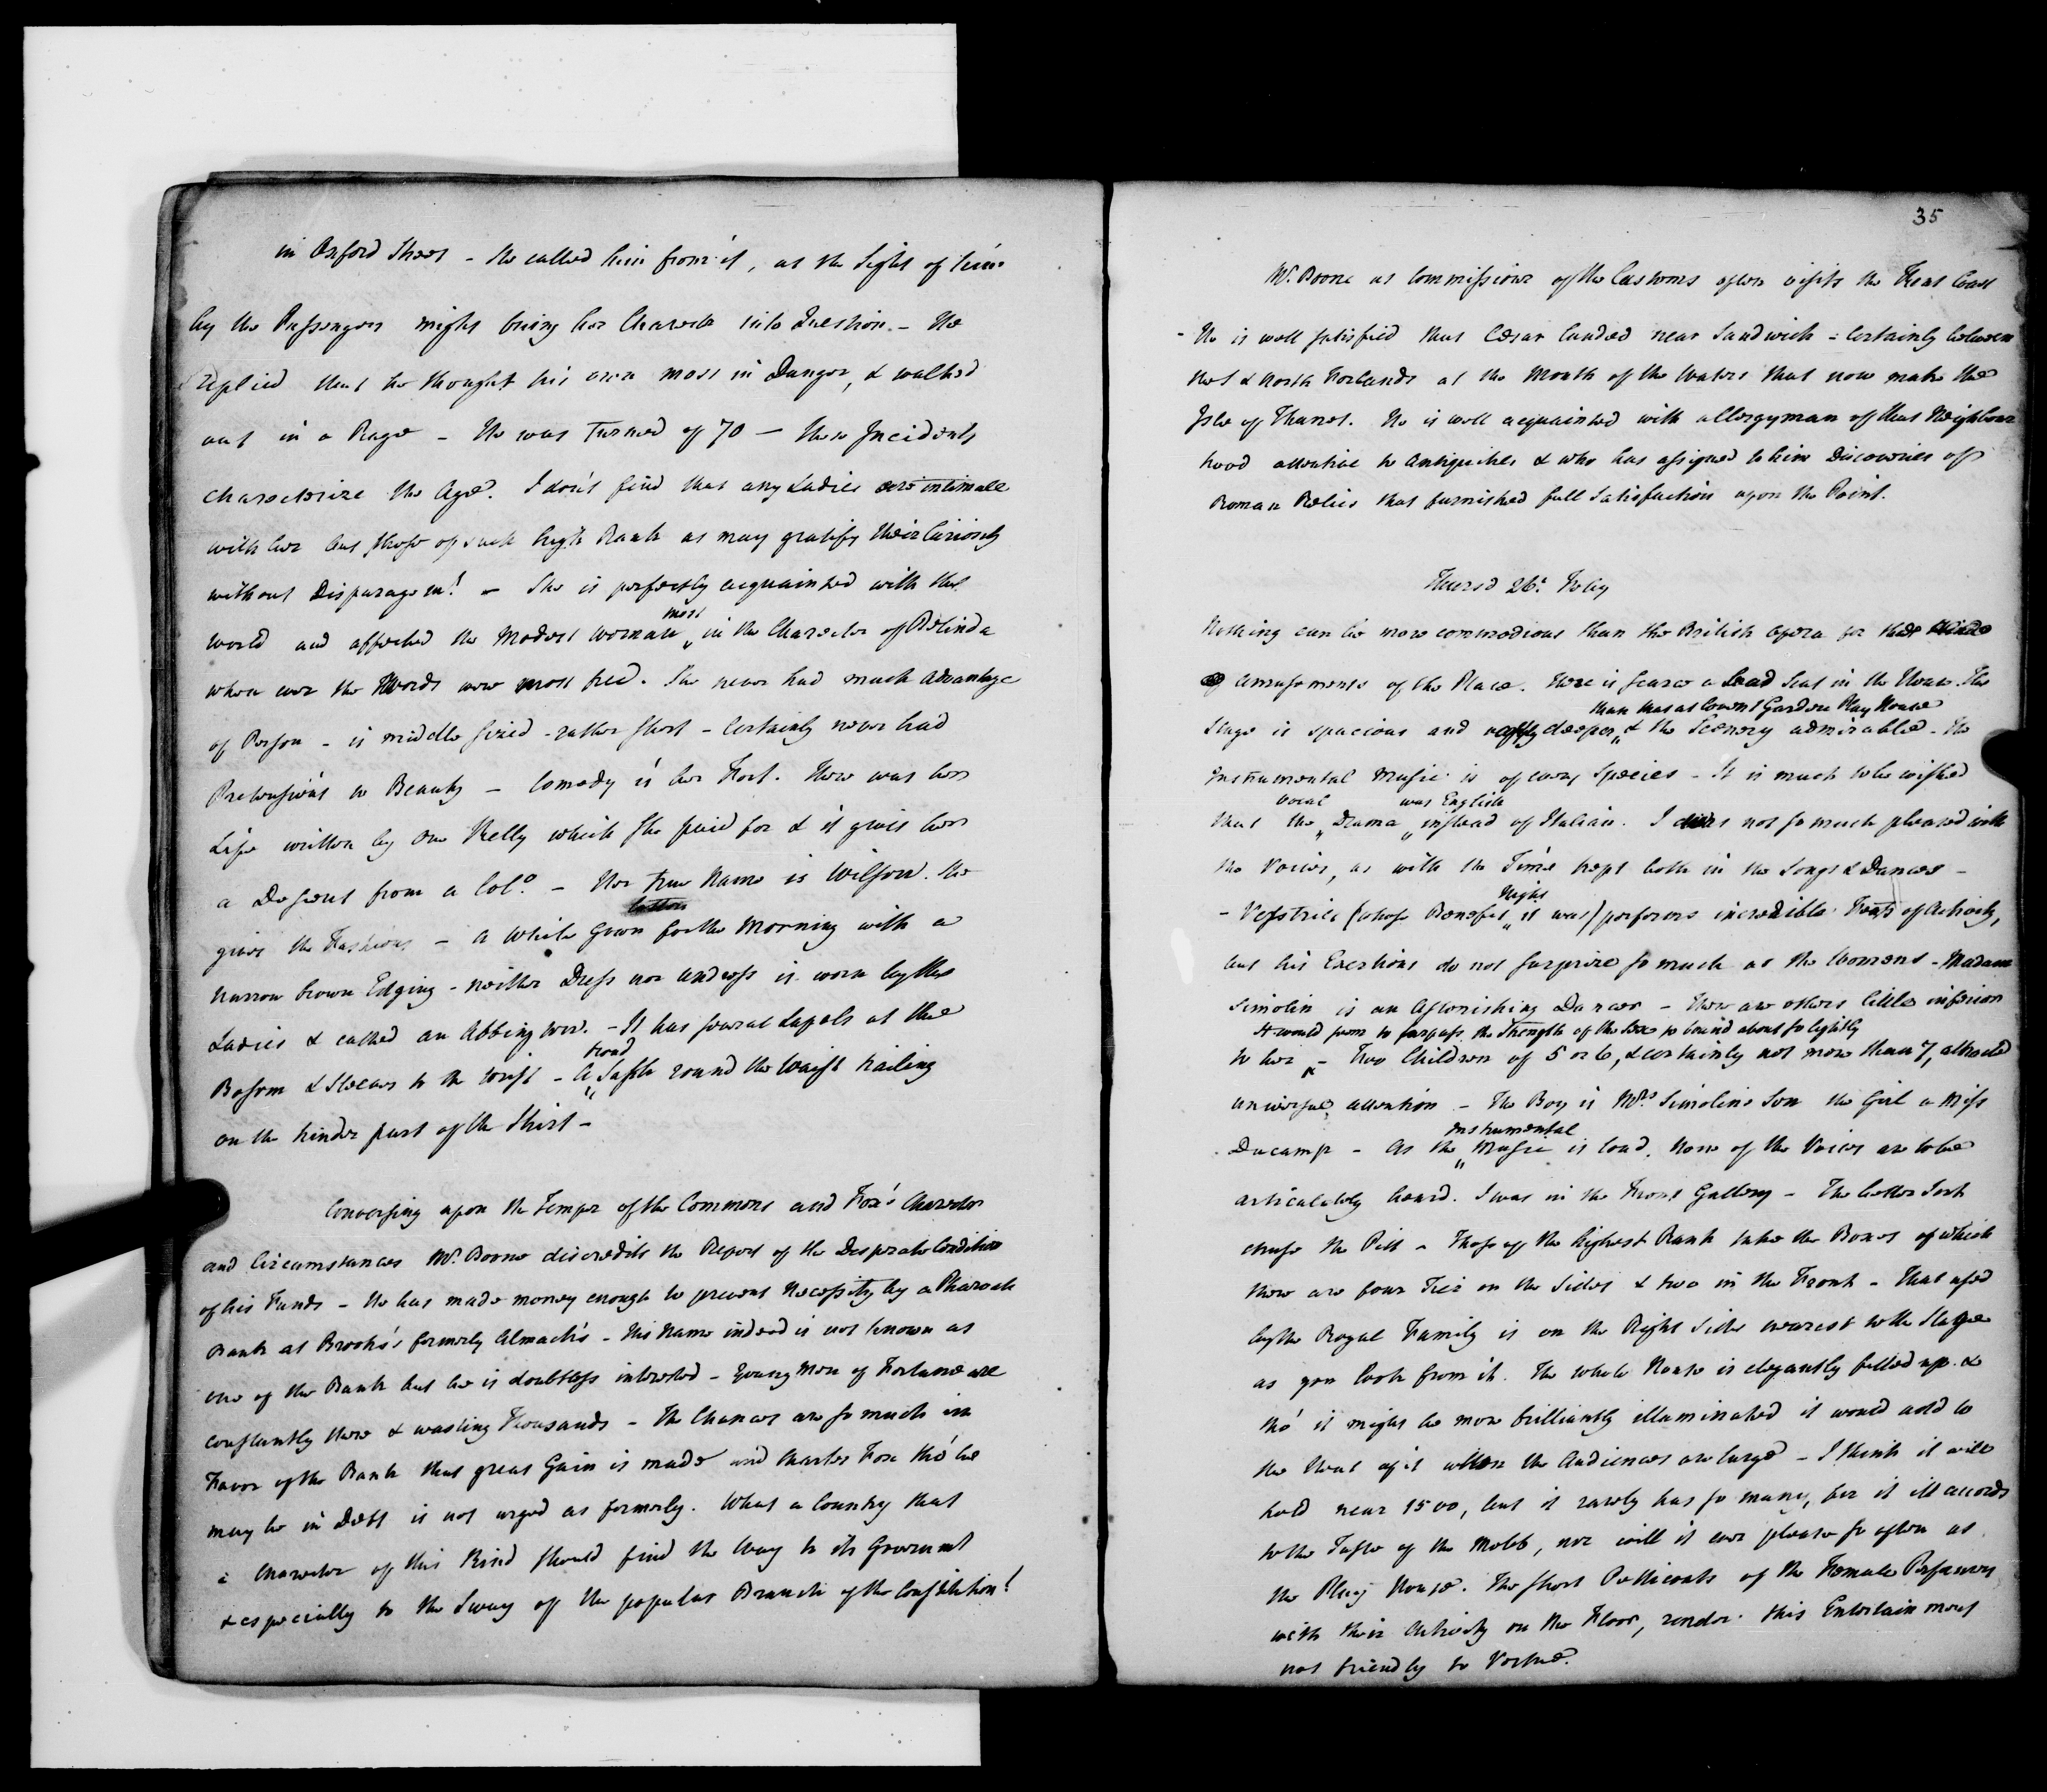 in Oxford Street - She called him from it, as the Sight of him
by the Passengers might bring her Character into Question. - He
replied that he thought his own most in Danger, & walked
out in a Rage - He was turned of 70 - these Incidents
characterize the Age. I don't find that any Ladies are intimate
with her but those of such high Rank as may gratify their Curiosity
without Disparagemt. - She is perfectly acquainted with the
most
World and affected the Modest Woman in the Character of Belinda
when ever the Words were most free. She never had much advantage
of Person - is middle sized - rather short - Certainly never had
Pretensions to Beauty - Comedy is her Fort. There was her
Life written by one Kelly which she paid for & it gives her
a Descent from a Colo. - Her true Name is Wilson. She
gives the Fashions - A White Gown for the Morning with a
narrow brown Edging - neither Dress nor undress is worn by the
Ladies & called an Abbington. - It has several Lapels at the
Bosom & Sleeves to the Wrist - A Sash round the Waist trailing
on the hinder part of the Skirt -
Conversing upon the Temper of the Commons and Fox's Character
and Circumstances Mr. Boone discredits the Report of the Desperate Condition
of his Funds - He has made money enough to prevent Necessity by a Pharoah
Bank at Brooks's formerly Almack's - His Name indeed is not known as
one of the Bank but he is doubtless interested - Young Men of Fortune are
constantly there & wasting Thousands - The Chances are so much in
Favor of the Bank that great Gain is made and Charles Fox tho' he
may be in Debt is not urged as formerly. What a Country that
a Character of this Kind should find the Way to its Governmt
& especially to the Sway of the popular Branch of the Constitution!
35
Mr. Boone as Commissioner of the Customs often visits the Kent Coast
- He is well satisfied that Cæsar landed near Sandwich - Certainly between
that & North Forlands at the Mouth of the Waters that now make the
Isle of Thanet. He is well acquainted with a Clergyman of that Neighbour
hood attentive to Antiquities & who has assigned to him Discoveries of
Roman Relics that furnished full Satisfaction upon the Point.
Thursd 26. Feby
Nothing can be more commodious than the British Opera for the
amusements of the Place. There is scarce a bad Seat in the House. The
than that at Covent Garden Play House
Stage is spacious and vastly deeper & the Scenery admirable. The
Instrumental Music is of every Species - It is much to be wished
vocal was English
that the Drama instead of Italian. I was not so much pleased with
the Voices, as with the Time kept both in the Songs & Dances -
Night
- Vestries (whose Benefit it was) performs incredible Feats of Activity,
but his Exertions do not surprize so much as the Womens - Madam
Simolin is an Astonishing Dancer - there are others little inferior
It would seem to surpass the Strength of the Sex to bound about so lightly
to her - Two Children of 5 or 6, & certainly not more than 7, attracted
universal attention - The Boy is Mrs Simolins Son the Girl a Miss
Instrumental
Ducamp - As the Music is loud, none of the Voices are to be
articulately heard. I was in the Front Gallery - The better Sort
chuse the Pitt - Those of the highest Rank take the Boxes of which
there are four Tier on the Sides & two in the Front - That used
by the Royal Family is on the Right Side nearest to the Stage
as you look from it. The whole House is elegantly fitted up &
tho' it might be more brilliantly illuminated it would add to
the Heat of it when the Audiences are large - I think it will
hold near 1500, but it rarely has so many, for it ill accords
to the Taste of the Mobb, nor will it ever please so often as
the Play House. The short Petticoats of the Female Performers
with their Activity on the Floor, render this Entertainment
not friendly to Virtue.